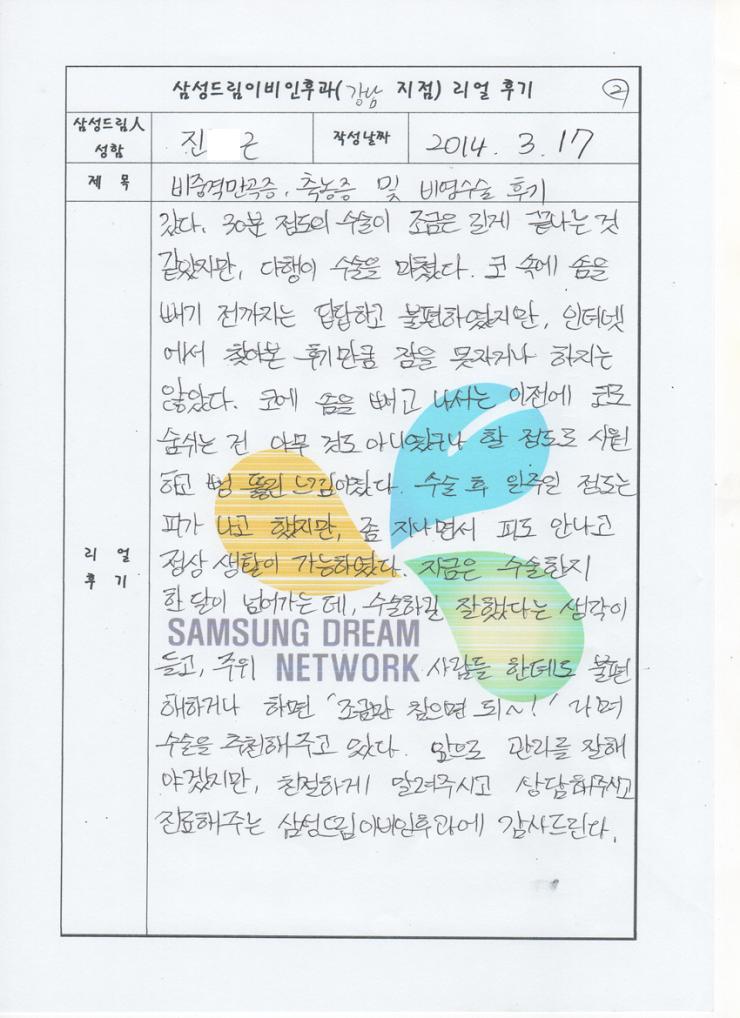 삼성드림이비인후과(강남 지점) 리얼 후기 ②
삼성드림人
성함
진 근
작성날짜
2014. 3. 17
제 목
비중격만곡증, 축농증 및 비염수술 후기
리 얼
후 기
갔다. 30분 정도의 수술이 조금은 길게 끝나는 것
같았지만, 다행이 수술을 마쳤다. 코 속에 솜을
빼기 전까지는 답답하고 불편하였지만, 인터넷
에서 찾아본 후기만큼 잠을 못자거나 하지는
않았다. 코에 솜을 빼고 나서는 이전에 코로
숨쉬는 건 아무 것도 아니였구나 할 정도로 시원
하고 뻥 뚫린 느낌이였다. 수술 후 일주일 정도는
피가 나고 했지만, 좀 지나면서 피도 안나고
정상 생활이 가능하였다. 지금은 수술한지
한 달이 넘어가는 데, 수술하길 잘했다는 생각이
들고, 주위 사람들 한테도 불편
해하거나 하면 '조금만 참으면 되~!' 라며
수술을 추천해주고 있다. 앞으로 관리를 잘해
야겠지만, 친절하게 알려주시고 상담해주시고
진료해주는 삼성드림이비인후과에 감사드린다.
SAMSUNG DREAM
NETWORK